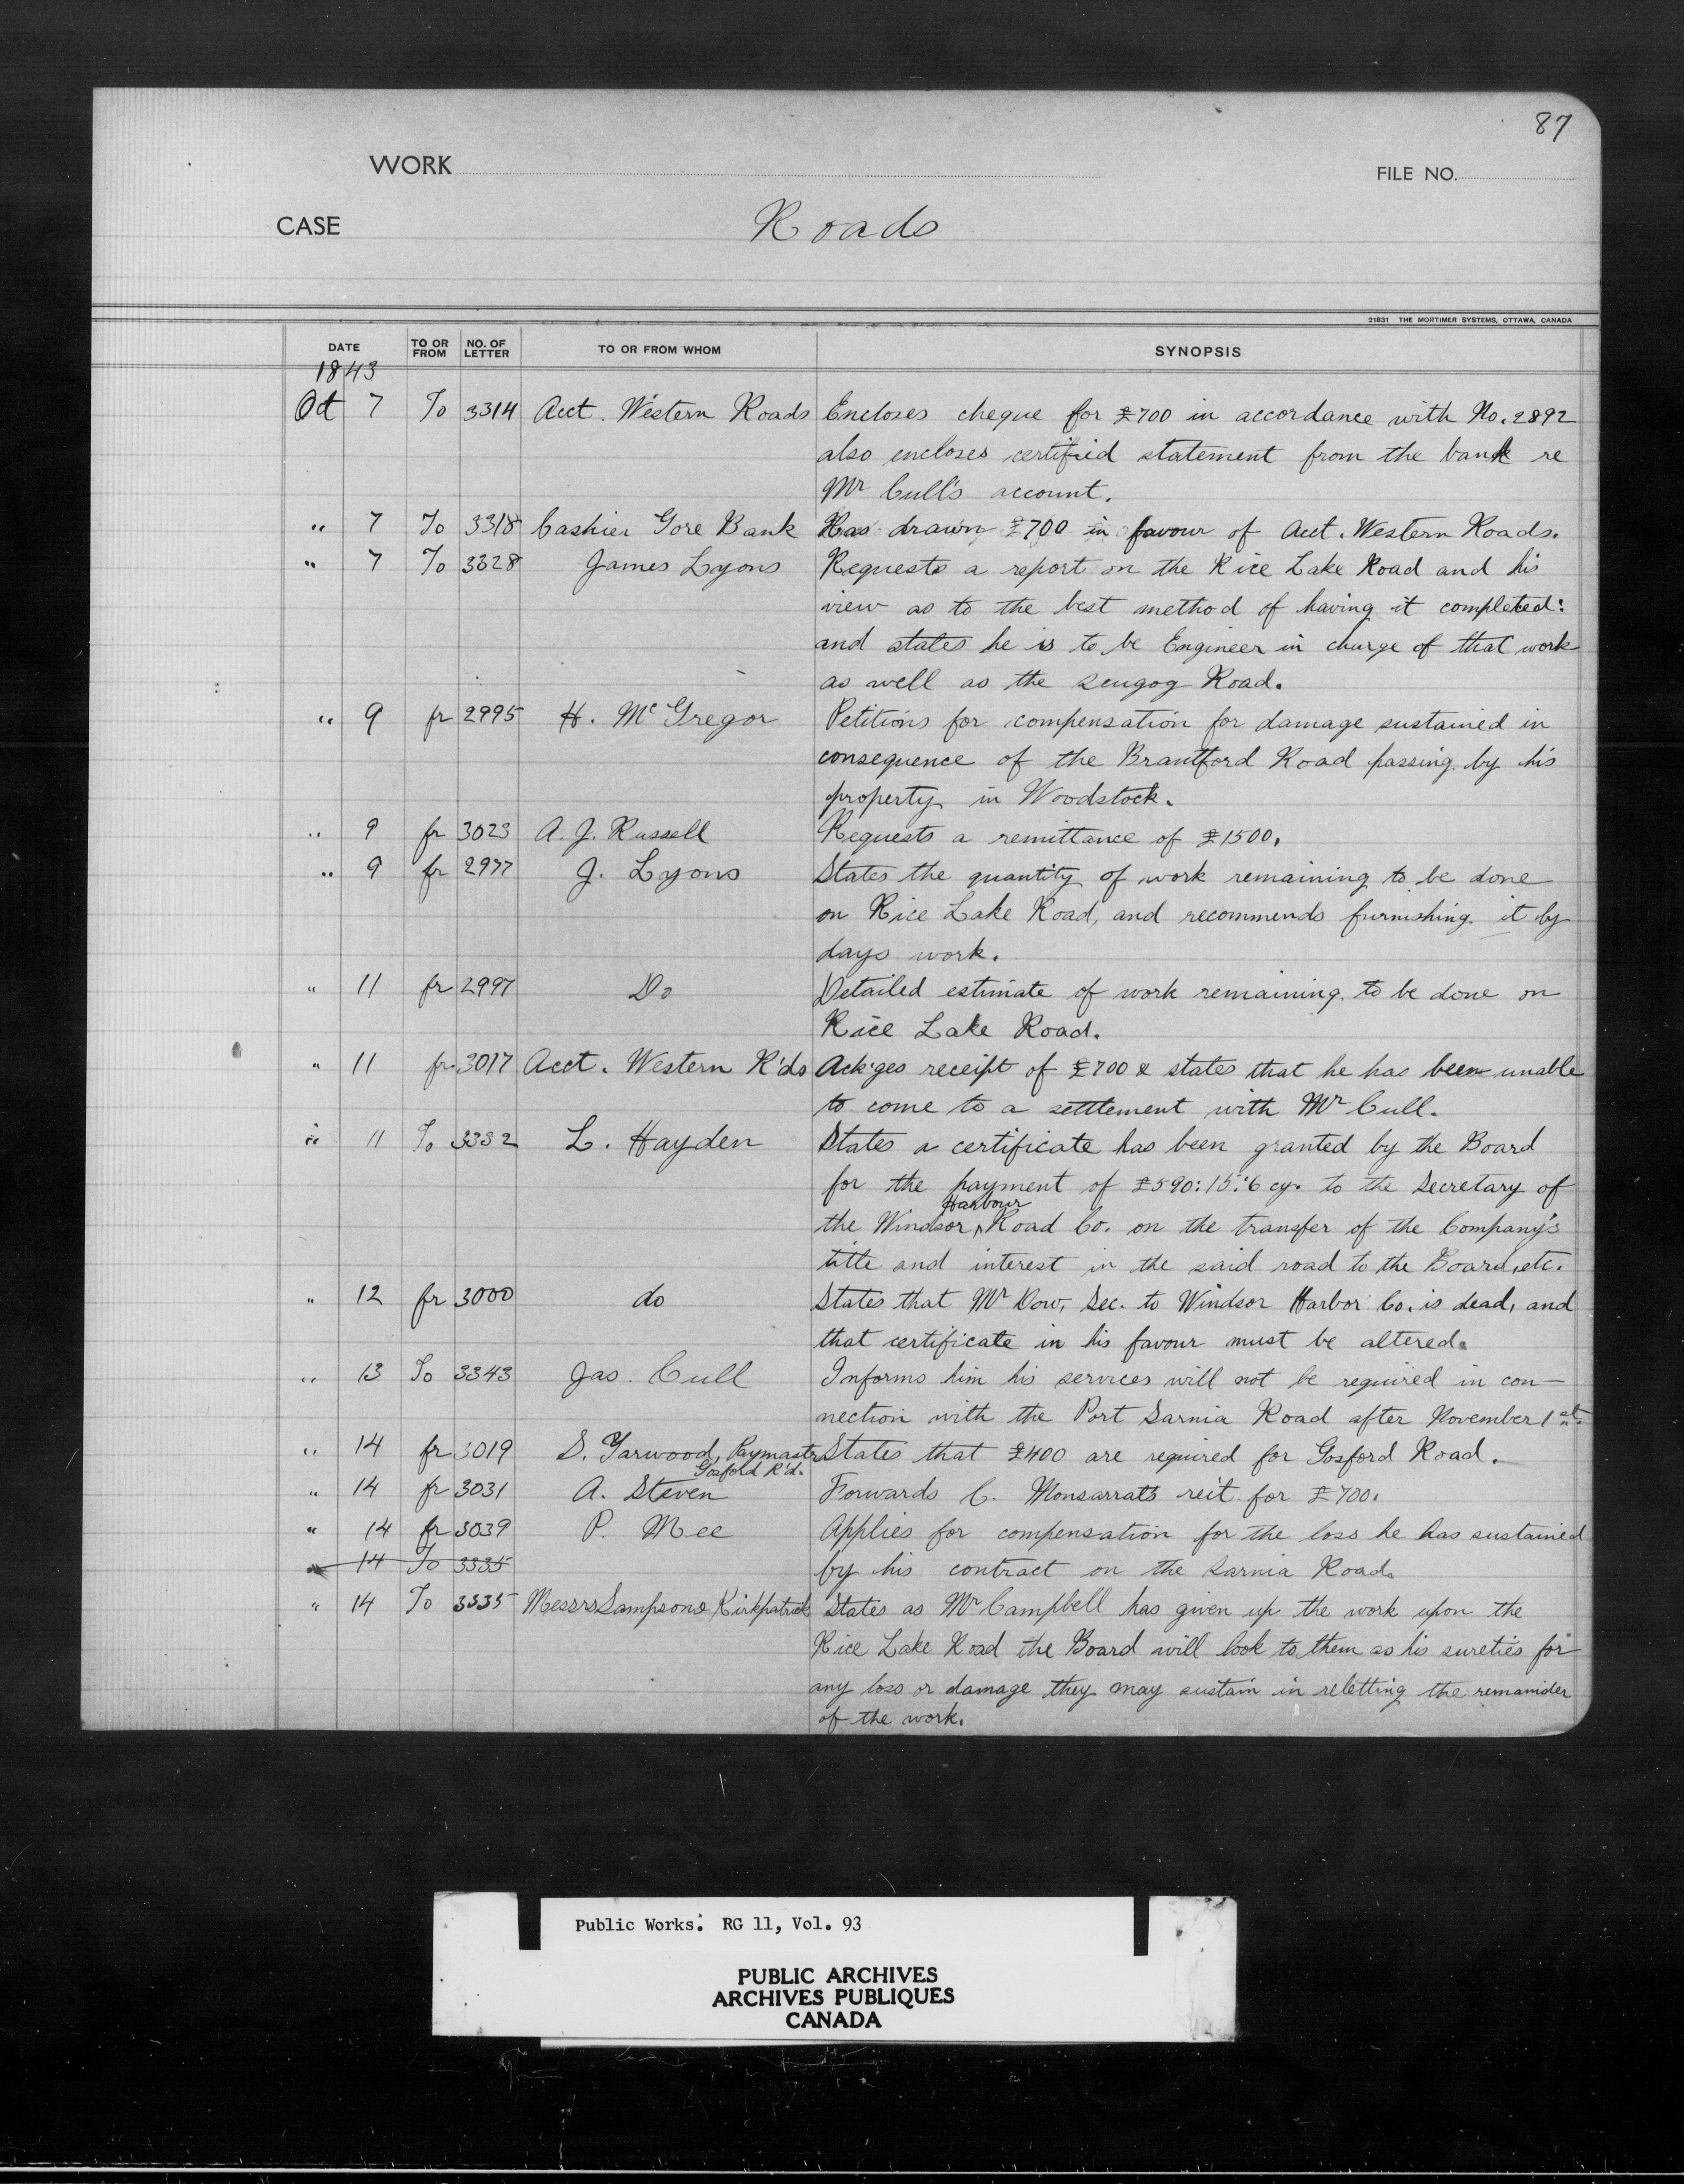 87
WORK
FILE NO.
CASE
Roads
21831 THE MORTIMER SYSTEMS, OTTAWA, CANADA
DATE TO OR FROM NO. OF LETTER TO OR FROM WHOM SYNOPSIS
1843
Oct 7 To 3314 Acct. Western Roads Encloses cheque for £700 in accordance with No. 2892
also encloses certified statement from the bank re
Mr Cull's account.
" 7 To 3318 Cashier Gore Bank Has drawn £700 in favour of Acct. Western Roads.
" 7 To 3328 James Lyons Requests a report on the Rice Lake Road and his
view as to the best method of having it completed:
and states he is to be Engineer in charge of that work
as well as the Scugog Road.
" 9 fr 2995 H. McGregor Petitions for compensation for damage sustained in
consequence of the Brantford Road passing by his
property in Woodstock.
" 9 fr 3023 A. J. Russell Requests a remittance of £1500.
" 9 fr 2977 J. Lyons States the quantity of work remaining to be done
on Rice Lake Road, and recommends furnishing it by
days work.
" 11 fr 2997 Do Detailed estimate of work remaining to be done on
Rice Lake Road.
" 11 fr 3017 Acct. Western R'ds Ack'ges receipt of £700 & states that he has been unable
to come to a settlement with Mr Cull.
" 11 To 3332 L. Hayden States a certificate has been granted by the Board
for the payment of £590:15:6 cy. to the Secretary of
the Windsor ^ Harbour Road Co. on the transfer of the Company's
title and interest in the said road to the Board, etc.
" 12 fr 3000 do States that Mr Dow, Sec. to Windsor Harbor Co. is dead, and
that certificate in his favour must be altered.
" 13 To 3343 Jas. Cull Informs him his services will not be required in con-
nection with the Port Sarnia Road after November 1st.
" 14 fr 3019 S. Yarwood, Paymastr States that £400 are required for Gosford Road.
Gosford R'd.
" 14 fr 3031 A. Steven Forwards C. Monsarrat's reit for £700.
" 14 fr 3039 P. Mee Applies for compensation for the loss he has sustained
" 14 To 3335 by his contract on the Sarnia Road.
" 14 To 3335 Messrs Sampson & Kirkpatrick States as Mr Campbell has given up the work upon the
Rice Lake Road the Board will look to them as his sureties for
any loss or damage they may sustain in reletting the remainder
of the work.
Public Works. RG 11, Vol. 93
PUBLIC ARCHIVES
ARCHIVES PUBLIQUES
CANADA